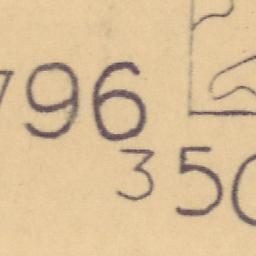 796
350